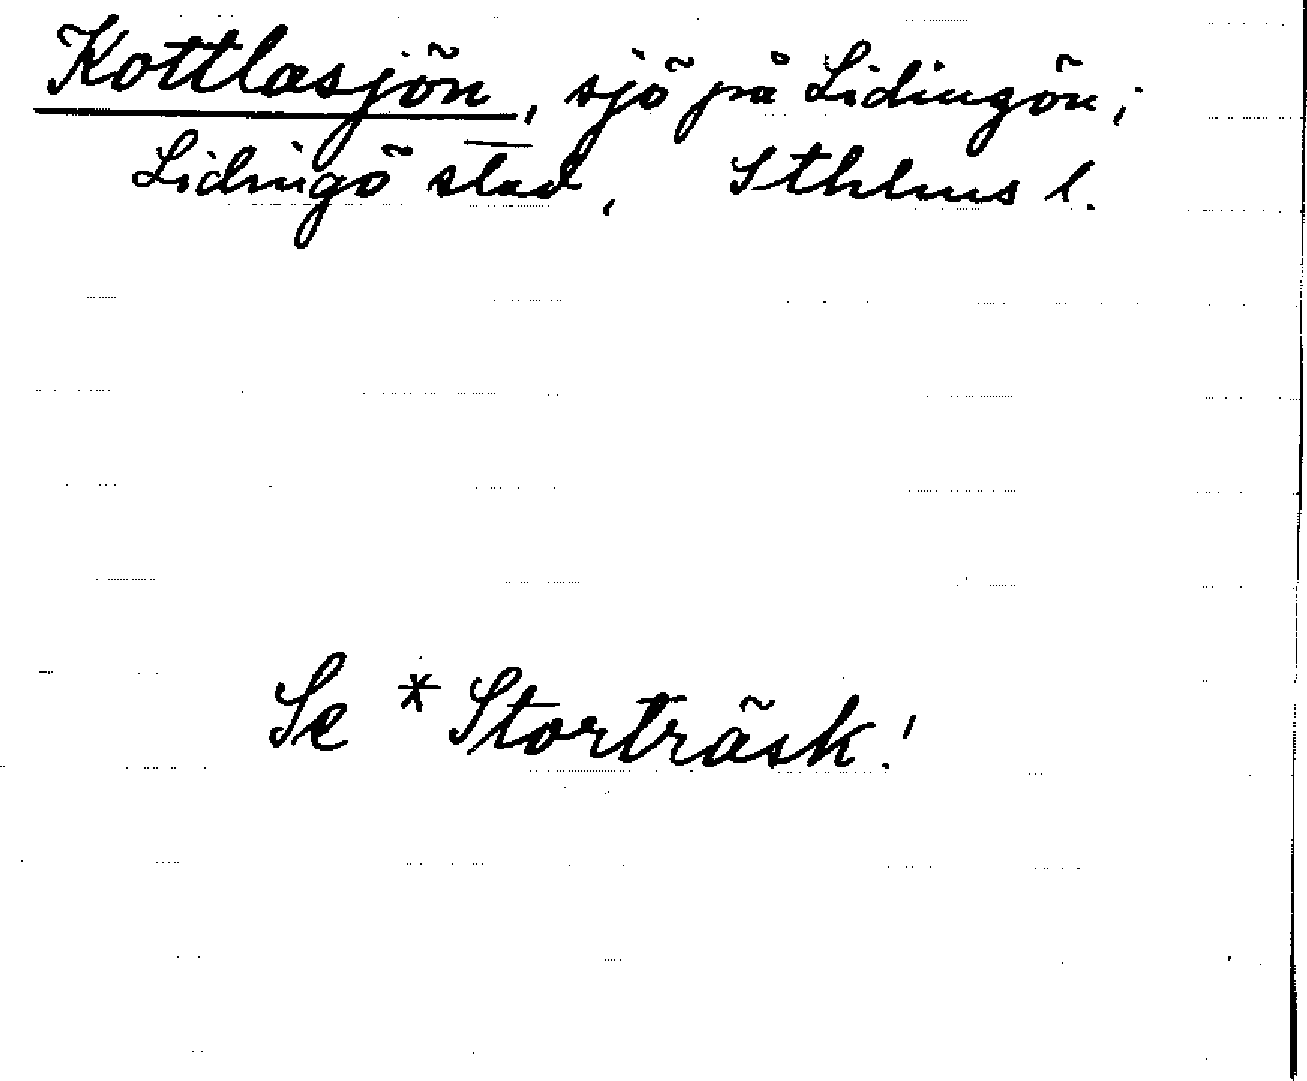 Kottlasjön, sjö på Lidingön;
Lidingö stad, Sthlms l.
Se *Storträsk!